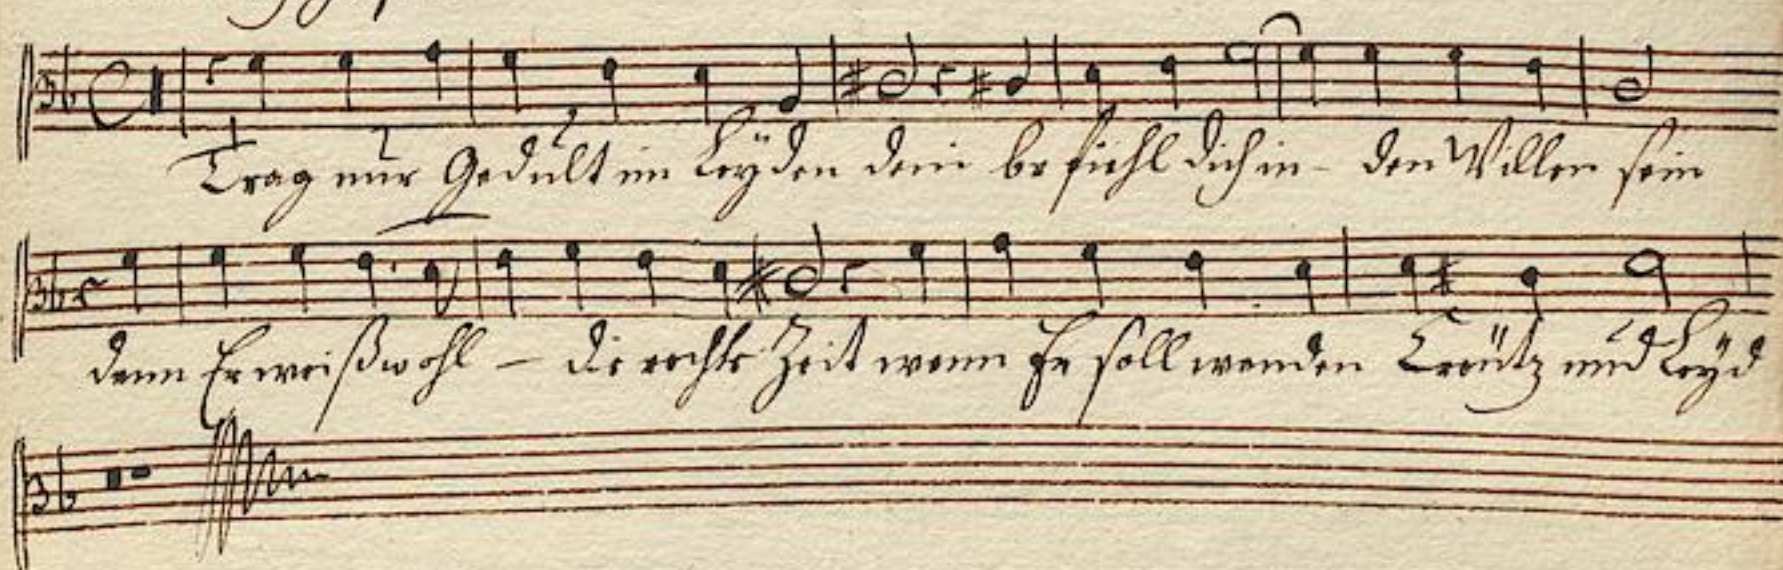 Trag nur Gedult im Leyden dein befiehl dich in - den Willen sein
denn Er weiß wohl - die rechte Zeit wenn Er soll wenden Creütz und Leyd